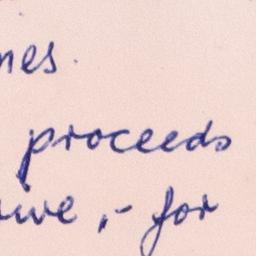 nes.
proceeds
ive,- for